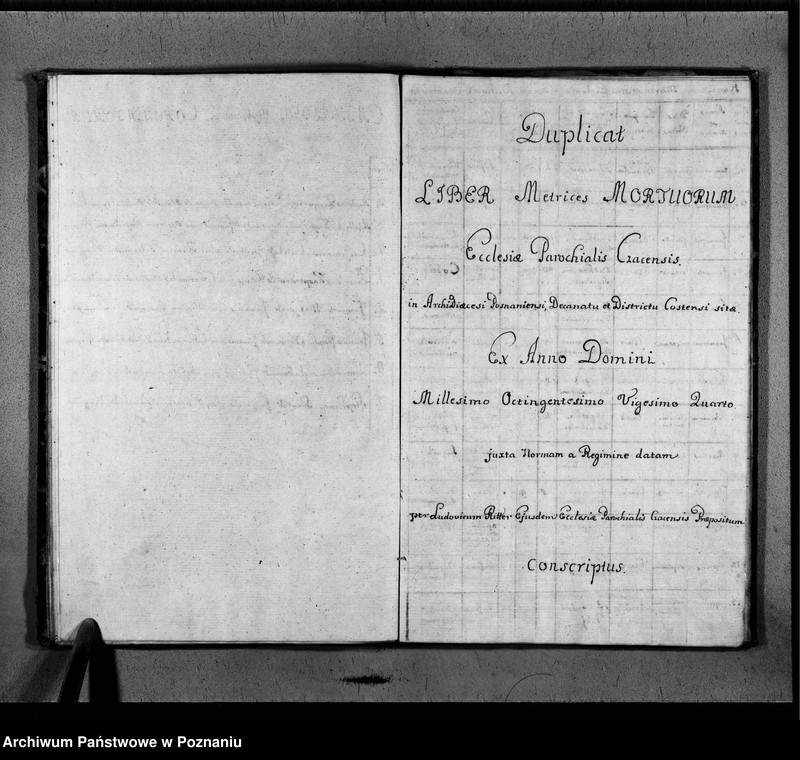 Duplicat
LIBER Metrices MORTUORUM
Ecclesiæ Parochialis Czacensis.
in Archidiœcesi Posnaniensi, Decanatu et Districtu Costensi sitæ.
Ex Anno Domini
Millesimo Octingentesimo Vigesimo Quarto
juxta Normam a Regimine datam
per Ludovicum Ritter Ejusdem Ecclesiæ Parochialis Czacensis Præpositum
Conscriptus.
Archiwum Państwowe w Poznaniu